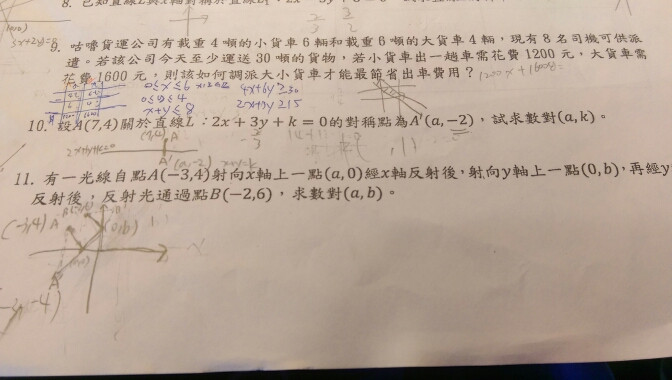 9. 咕嚕貨運公司有載重 4 噸的小貨車 6 輛和載重 6 噸的大貨車 4 輛，現有 8 名司機可供派
遣。若該公司今天至少運送 30 噸的貨物，若小貨車出一趟車需花費 1200 元，大貨車需
花費 1600 元，則該如何調派大小貨車才能最節省出車費用？
0≤x≤6
4x+6y≥30
0≤y≤4
2x+3y≥15
x+y≤8
10. 設A(7,4)關於直線L：2x+3y+k=0的對稱點為A'(a,−2)，試求數對(a,k)。
A
A'(a,-2)
11. 有一光線自點A(−3,4)射向x軸上一點(a,0)經x軸反射後，射向y軸上一點(0,b)，再經y
反射後，反射光通過點B(−2,6)，求數對(a,b)。
(-3,4) A
(0,b)